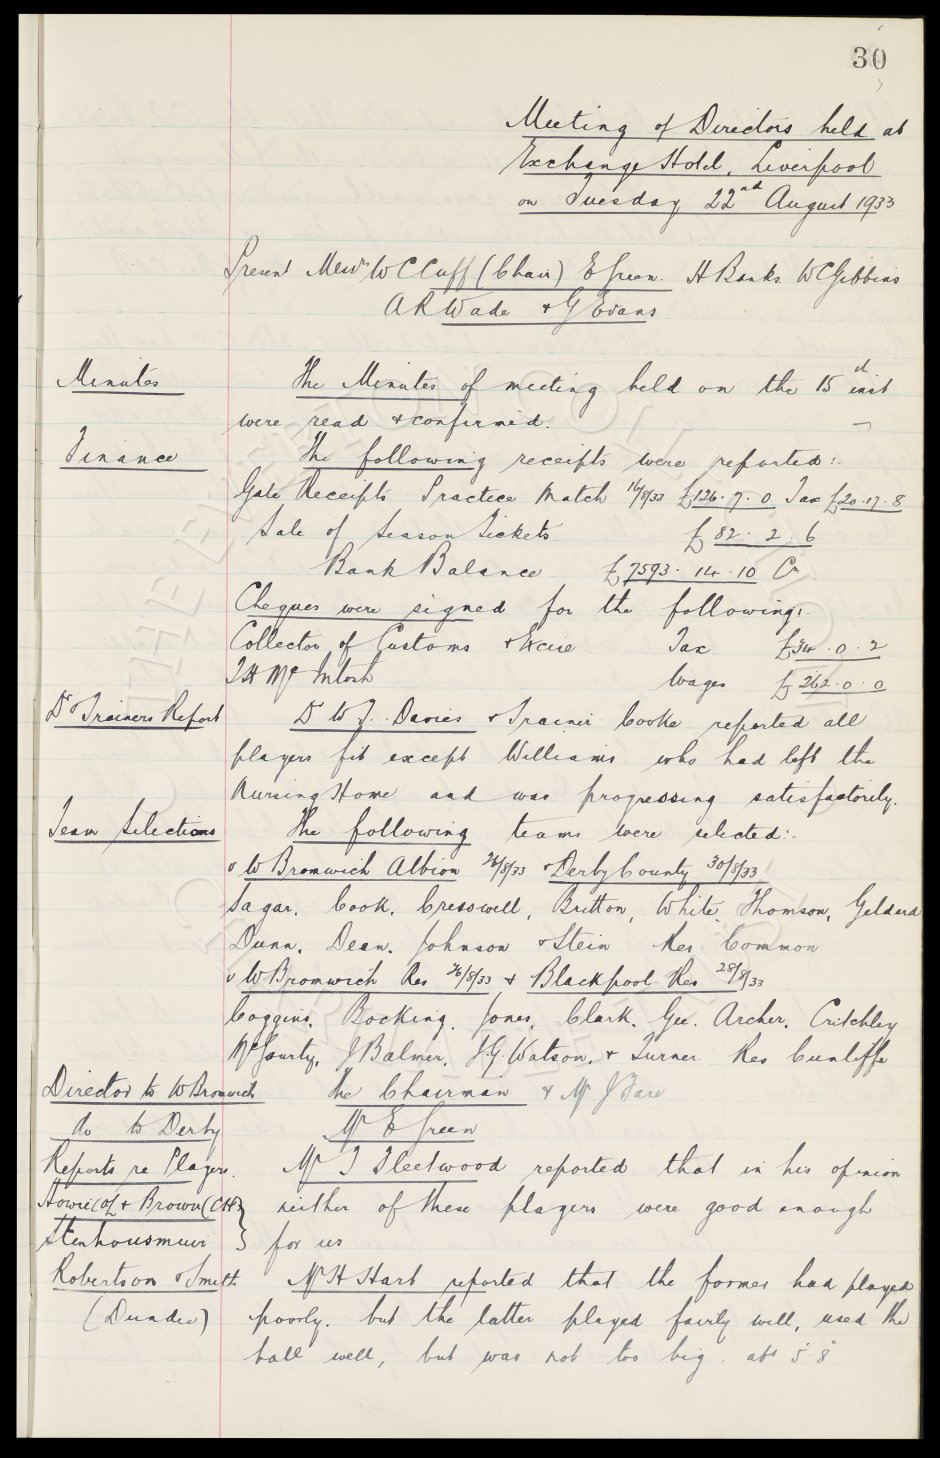 30
Meeting of Directors held at
Exchange Hotel, Liverpool
on Tuesday 22nd August 1933
Present Messrs W C Cuff (Chair) E Green. H Banks. W C Gibbins
A R Wade + G Evans
Minutes The Minutes of meeting held on the 15th inst
were read + confirmed.
Finance The following receipts were reported:-
Gate Receipts Practice Match 16/8/33 £126.7.0 Tax £20.17.8
Sale of Season Tickets £82.2.6
Bank Balance £7593.14.10 Cr
Cheques were signed for the following:-
Collector of Customs + Excise Tax £34.0.2
T H McIntosh Wages £262.0.0
Dr + Trainers Report Dr W J. Davies + Trainer Cooke reported all
players fit except Williams who had left the
Nursing Home and was progressing satisfactorily.
Team Selections The following teams were selected:-
v W Bromwich Albion 26/8/33 + Derby County 30/8/33
Sagar. Cook. Cresswell, Britton, White, Thomson, Geldard
Dunn. Dean. Johnson + Stein Res Common
v W Bromwich Res 26/8/33 + Blackpool Res 28/8/33
Coggins. Bocking. Jones, Clark. Gee. Archer. Critchley
McGourty, J Balmer, J.G. Watson. + Turner. Res Cunliffe
Director to W Bromwich The Chairman + Mr J Fare
do to Derby Mr E Green
Reports re Players. Mr T Fleetwood reported that in his opinion
Howie (OL + Brown (CH) neither of these players were good enough
Stenhousmuir } for us
Robertson + Smith Mr H Hart reported that the former had played
(Dundee) poorly. but the latter played fairly well, used the
ball well, but was not too big. abt 5' 8"